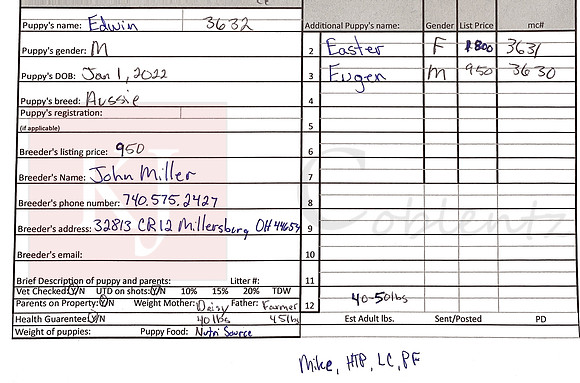 Puppy's name: Edwin 3632
Additional Puppy's name: Gender List Price mc#
Puppy's gender: M
2 Easter F 1800 3631
Puppy's DOB: Jan 1, 2022
3 Eugen M 950 3630
Puppy's breed: Aussie
4
Puppy's registration:
(if applicable)
5
Breeder's listing price: 950
6
Breeder's Name: John Miller
7
Breeder's phone number: 740.575.2427
8
Breeder's address: 32813 CR12 Millersburg OH 44654
9
Breeder's email:
10
Brief Description of puppy and parents: Litter #:
11
Vet Checked: Y/N UTD on shots: Y/N 10% 15% 20% TDW
Parents on Property: Y/N Weight Mother: Daisy Father: Farmer
12 40-50lbs
Health Guarenteed Y/N 40lbs 45lbs
Est Adult lbs. Sent/Posted PD
Weight of puppies: Puppy Food: Nutri Source
KJ Coblentz
Mike, HTP, LC, PF